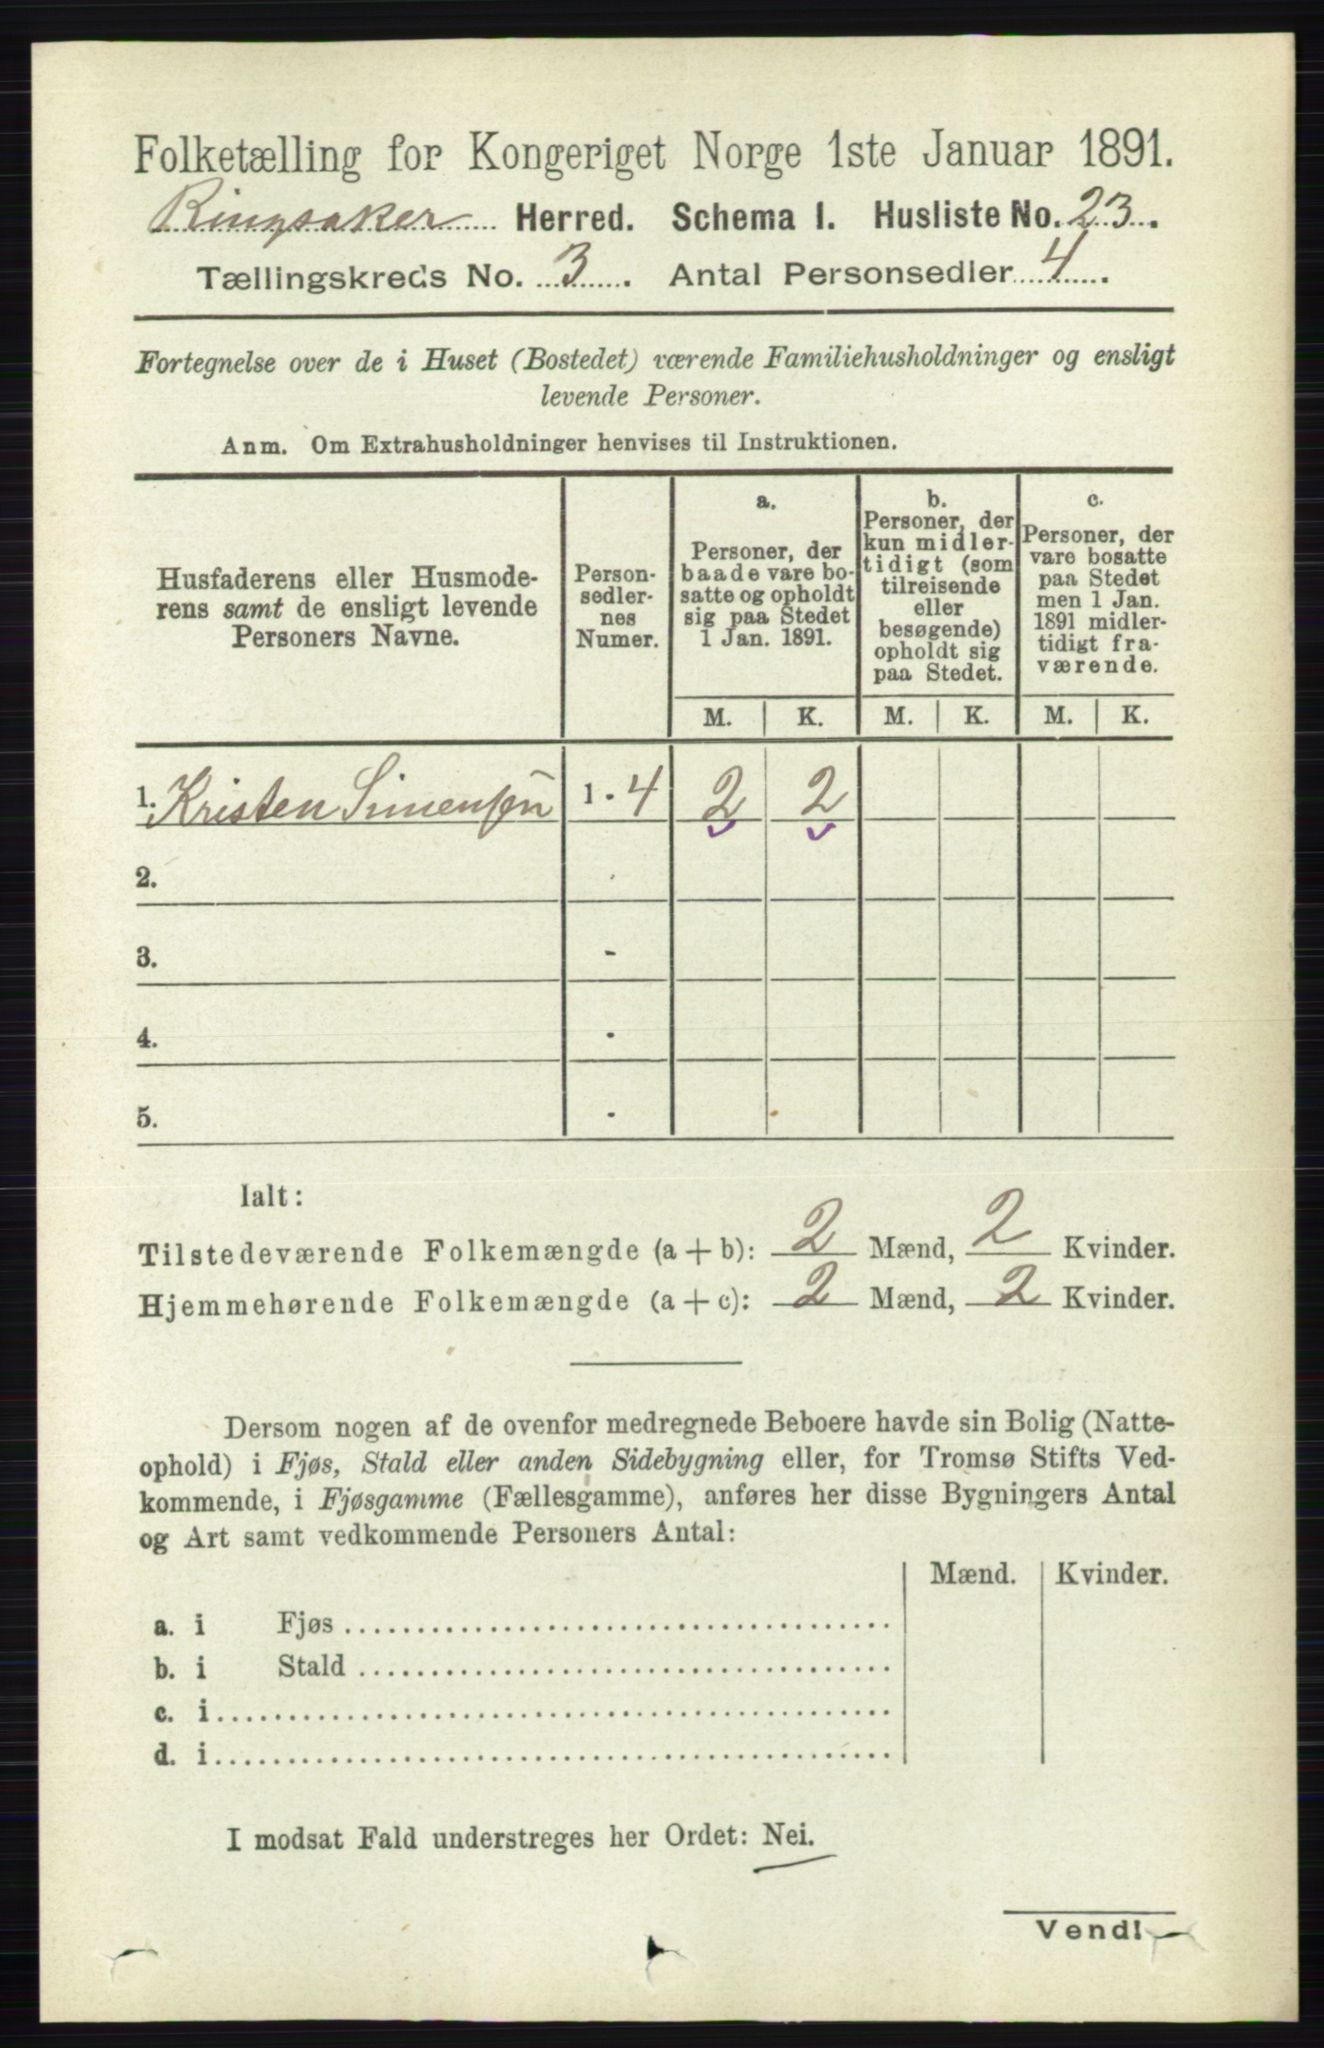 Folketælling for Kongeriget Norge 1ste Januar 1891.
Ringsaker Herred. Schema I. Husliste No. 23.
Tællingskreds No. 3. Antal Personsedler 4.
Fortegnelse over de i Huset (Bostedet) værende Familiehusholdninger og ensligt
levende Personer.
Anm. Om Extrahusholdninger henvises til Instruktionen.
Husfaderens eller Husmode-
rens samt de ensligt levende
Personers Navne.
Person-
sedler-
nes
Numer.
a.
Personer, der
baade vare bo-
satte og opholdt
sig paa Stedet
1 Jan. 1891.
b.
Personer, der
kun midler-
tidigt (som
tilreisende
eller
besøgende)
opholdt sig
paa Stedet.
c.
Personer, der
vare bosatte
paa Stedet
men 1 Jan.
1891 midler-
tidigt fra-
værende.
M. K. M. K. M. K.
1. Kristen Simensen 1 - 4 2 2
2. -
3. -
4. -
5. -
Ialt:
Tilstedeværende Folkemængde (a + b): 2 Mænd, 2 Kvinder.
Hjemmehørende Folkemængde (a + c): 2 Mænd, 2 Kvinder.
Dersom nogen af de ovenfor medregnede Beboere havde sin Bolig (Natte-
ophold) i Fjøs, Stald eller anden Sidebygning eller, for Tromsø Stifts Ved-
kommende, i Fjøsgamme (Fællesgamme), anføres her disse Bygningers Antal
og Art samt vedkommende Personers Antal:
Mænd. Kvinder.
a. i Fjøs
b. i Stald
c. i
d. i
I modsat Fald understreges her Ordet: Nei.
Vend!